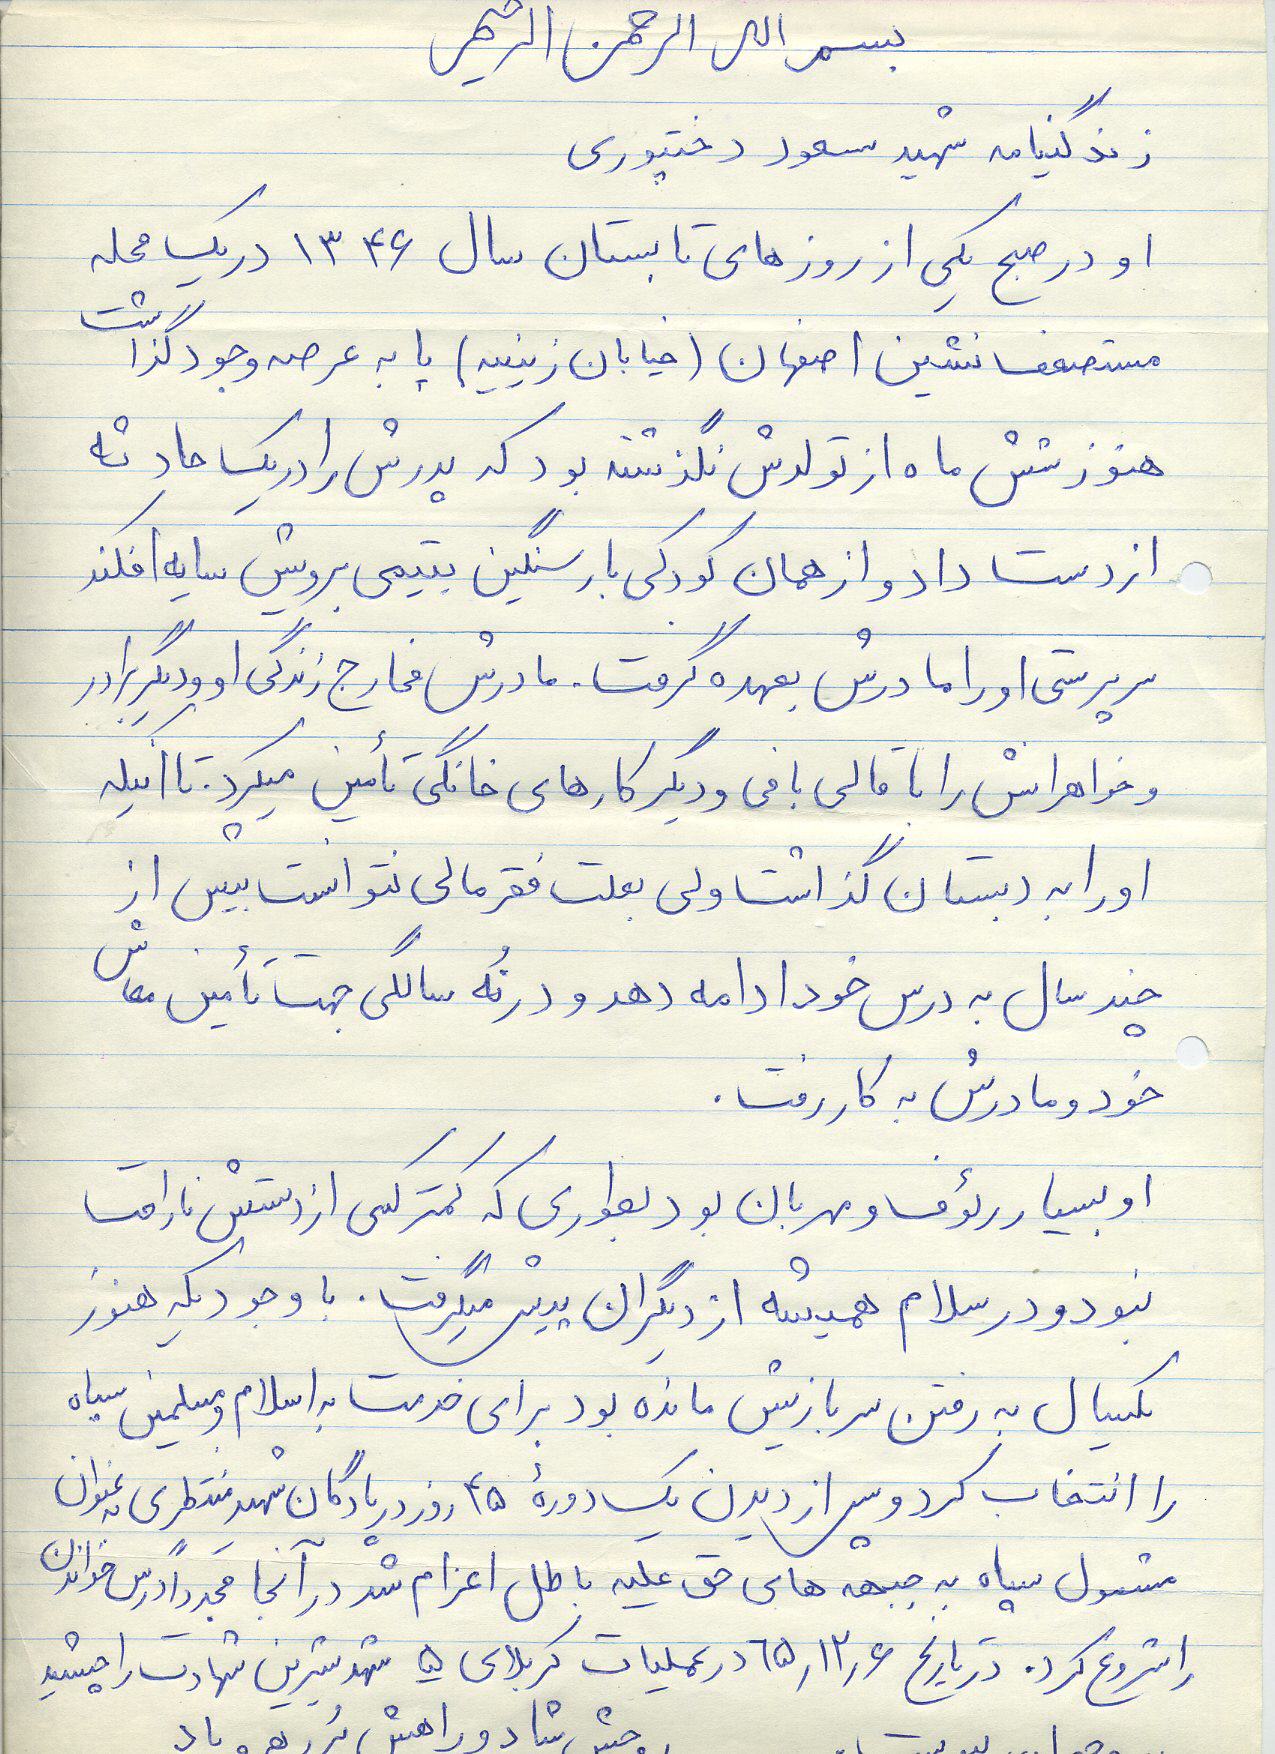 بسم الله الرحمن الرحیم
زندگینامه شهید سعود دختپوری
او در صبح یکی از روزهای تابستان سال ۱۳۴۶ در یک محله
مستضعف نشین اصفهان (خیابان زینبیه) پا به عرصه وجود گذاشت
هنوز شش ماه از تولدش نگذشته بود که پدرش را در یک حادثه
از دست داد و از همان کودکی بار سنگین یتیمی برویش سایه افکند
سرپرستی او را مادرش بعهده گرفت. مادرش مخارج زندگی او و دیگر برادر
و خواهرانش را با قالی بافی و دیگر کارهای خانگی تأمین میکرد. تا اینکه
او را به دبستان گذاشت ولی بعلت فقر مالی نتوانست بیش از
چند سال به درس خود ادامه دهد و در نُه سالگی جهت تأمین معاش
خود و مادرش به کار رفت.
او بسیار رئوف و مهربان بود بطوری که کمتر کسی از دستش ناراحت
نبود و در سلام همیشه از دیگران پیش میگرفت. با وجودیکه هنوز
یکسال به رفتن سربازیش مانده بود برای خدمت به اسلام و مسلمین سپاه
را انتخاب کرد و پس از دیدن یک دورهٔ ۴۵ روز در پادگان شهید منتظری به عنوان
مشمول سپاه به جبهه های حق علیه باطل اعزام شد در آنجا مجدداً درس خواندن
را شروع کرد. در تاریخ ۶۵/۱۲/۶ در عملیات کربلای ۵ شهد شیرین شهادت را چشید
پیوست. روحش شاد و راهش پُر رهرو باد